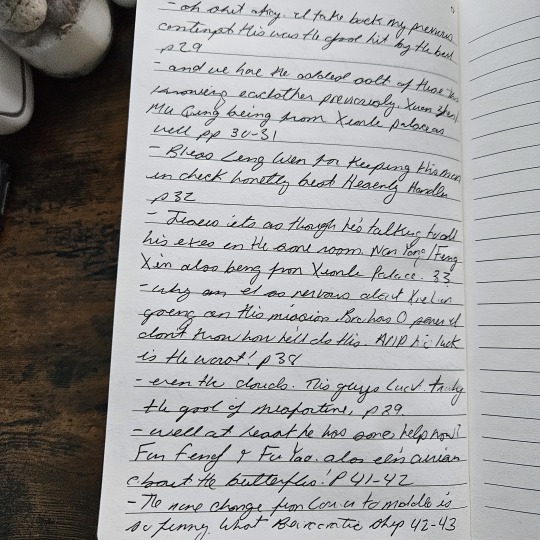 - oh shit okay. I'd take back my previous
contempt this was the god hit by the bell
p29
- and we have the added salt of these two
knowing eachother previously. Xuan Zhen/
Mu Qing being from Xianle palace as
well pp 30-31
- Bless Ling Wen for keeping this man
in check honestly best Heavenly Handler
p32
- Jiawu its as though he's talking to all
his exes in the same room. Nan Yang/Feng
Xin also being from Xianle Palace. 33
- why am I so nervous about Xie Lian
going on this mission. Bro has 0 power I
don't know how he'll do this. AND his luck
is the worst! p38
- even the clouds. This guys luck. truly
the god of misfortune, p39.
- well at least he has some help now?
Fu Yao. also
about the butterflies! P 41-42
- The name change from to is
so funny. What 42-43